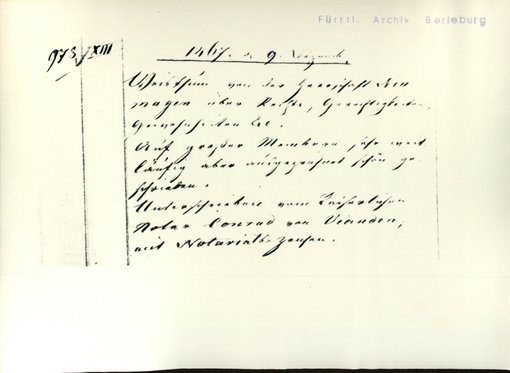 Fürstl. Archiv Berleburg
973 XIII
1467. d. 9.
Weisthum von der Herrschaft
magen über Rechte, Gerechtigkeiten,
Gewohnheiten etc.
Auf großer Membran, sehr weit
läufig aber ausgezeichnet schön ge
schrieben.
Unterschrieben vom Kaiserlichen
Notar Conrad von Vianden,
mit Notariats-Zeichen.